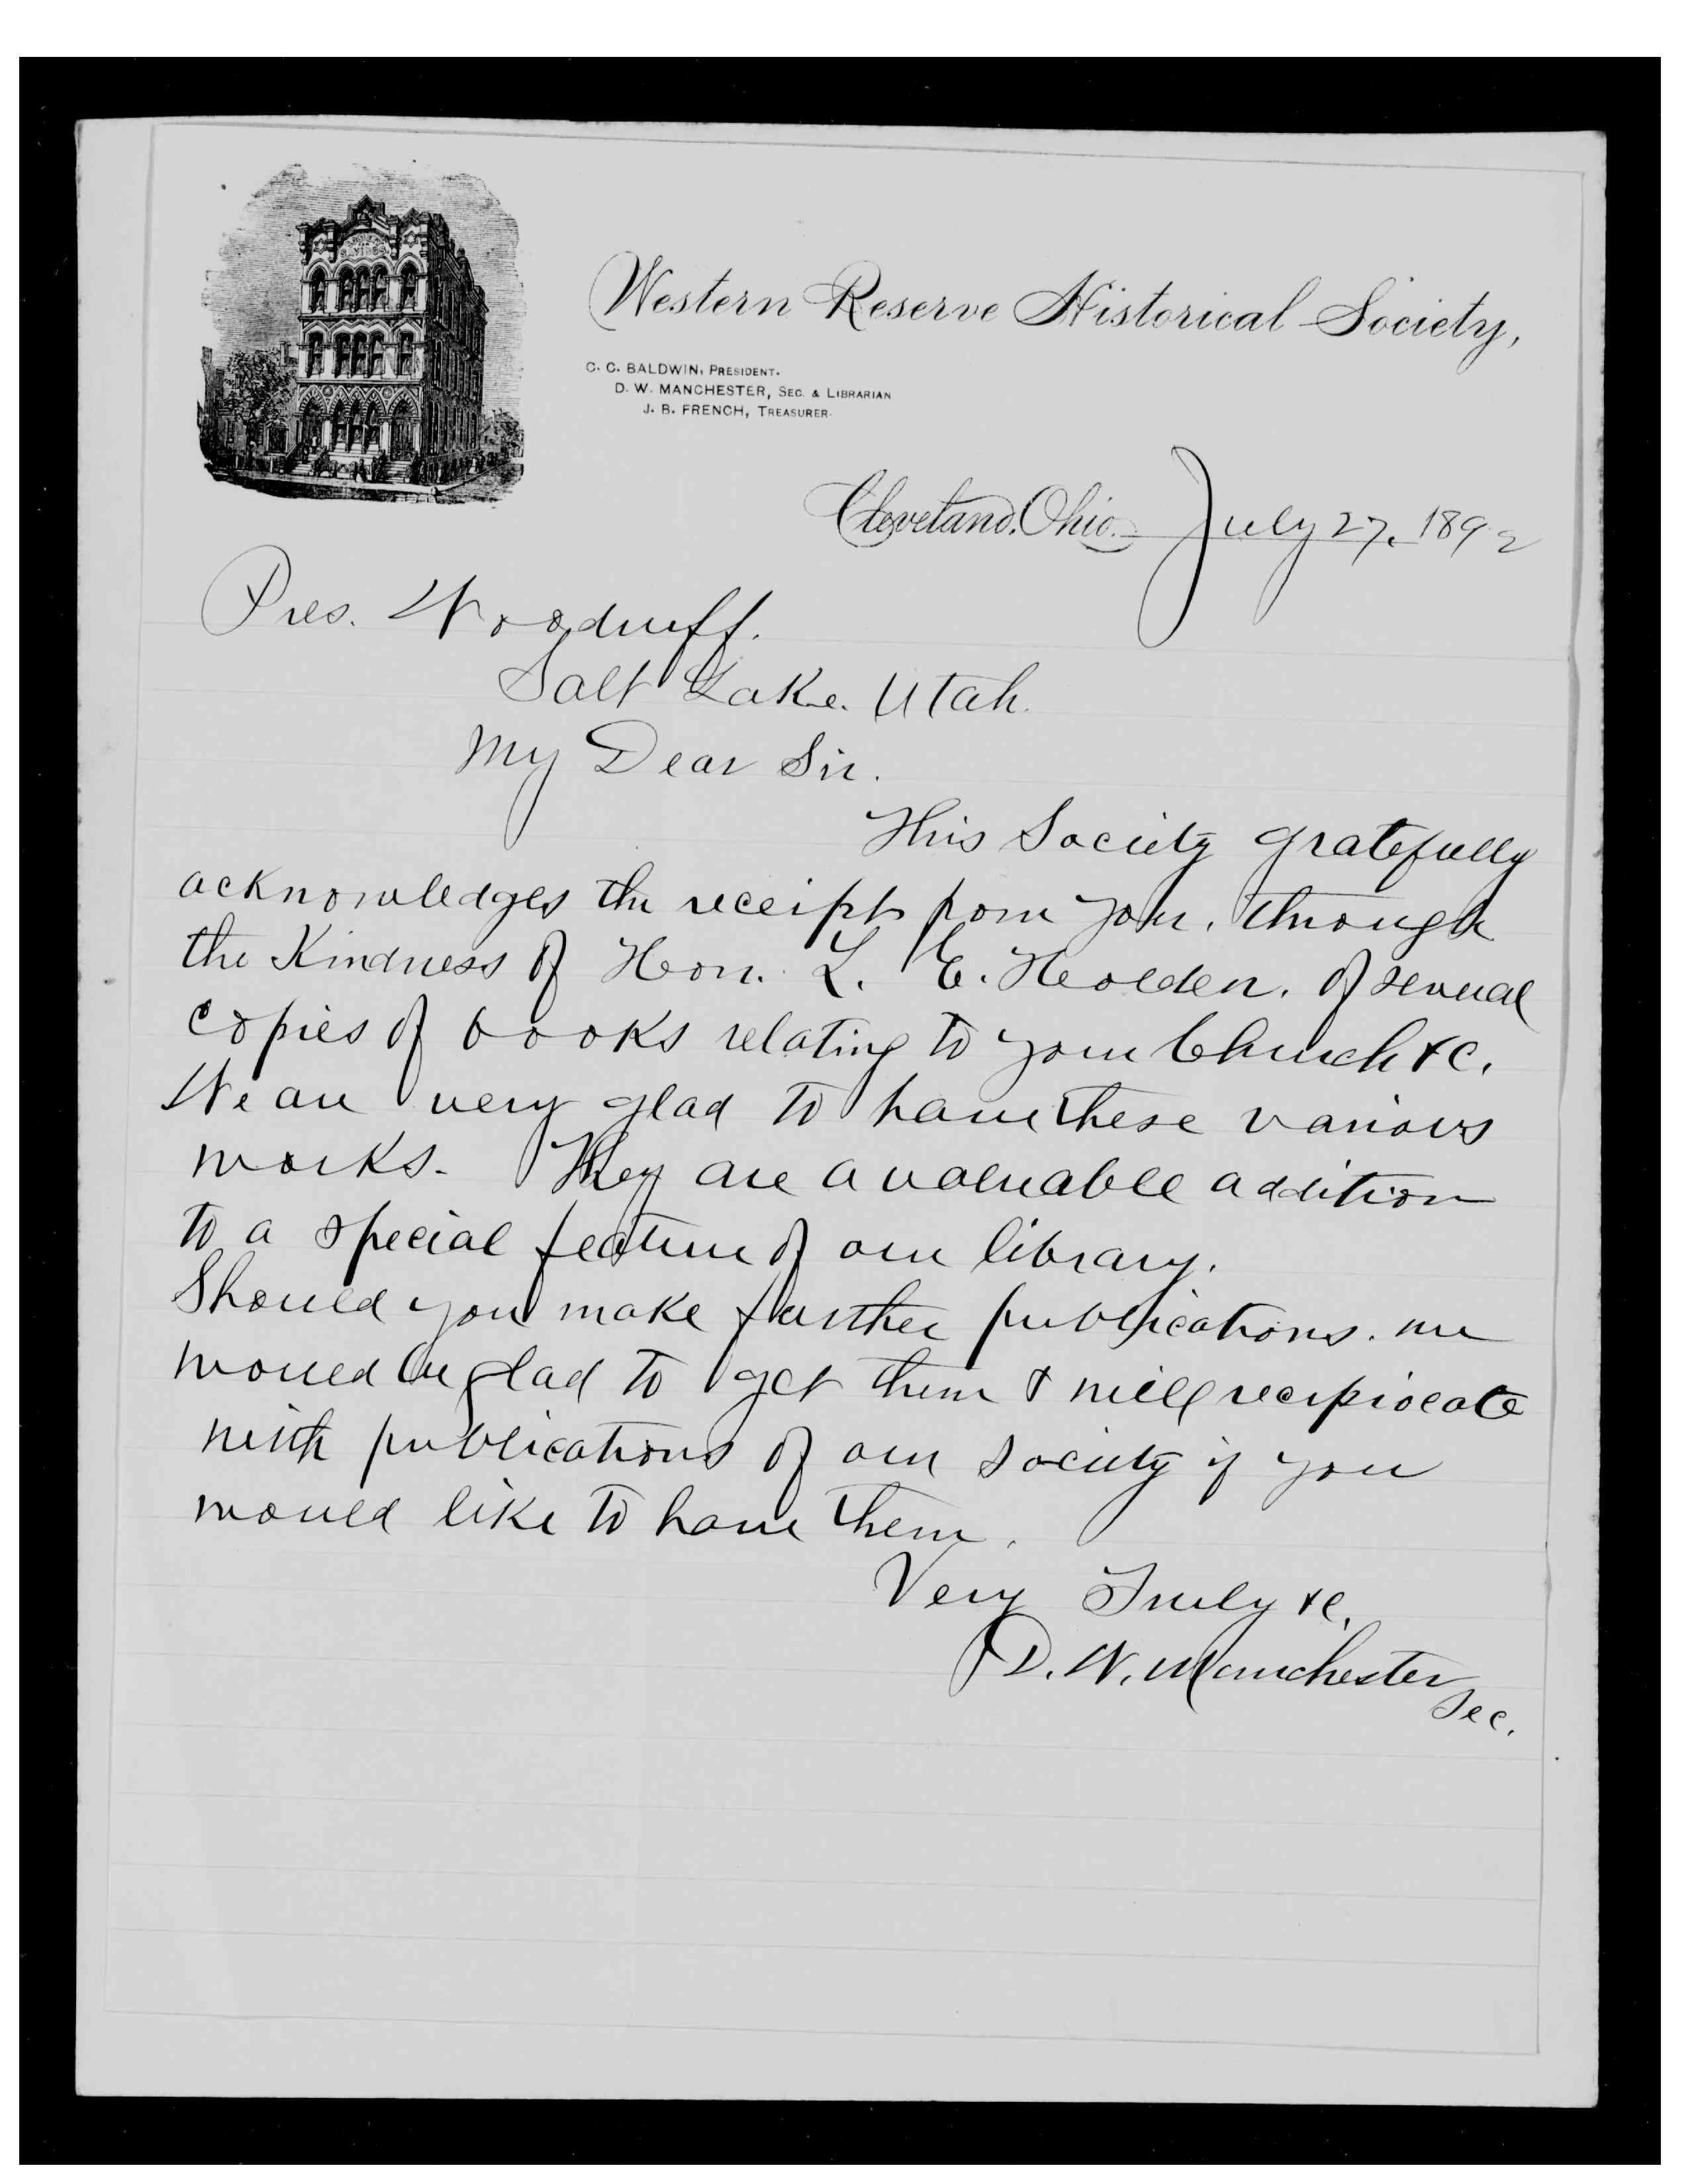 Western Reserve Historical Society,
C. C. BALDWIN, PRESIDENT.
D. W. MANCHESTER, SEC. & LIBRARIAN
J. B. FRENCH, TREASURER.
Cleveland, Ohio. July 27, 1892
Pres. Woodruff.
Salt Lake. Utah.
My Dear Sir.
This Society gratefully
acknowledges the receipt from you, through
the Kindness of Hon. L. E. Holden. of several
copies of books relating to your Church &c.
We are very glad to have these various
works. They are a valuable addition
to a special feature of our library.
Should you make further publications. we
would be glad to get them & will reciprocate
with publications of our society if you
would like to have them.
Very Truly &c.
D. W. Manchester
Sec.